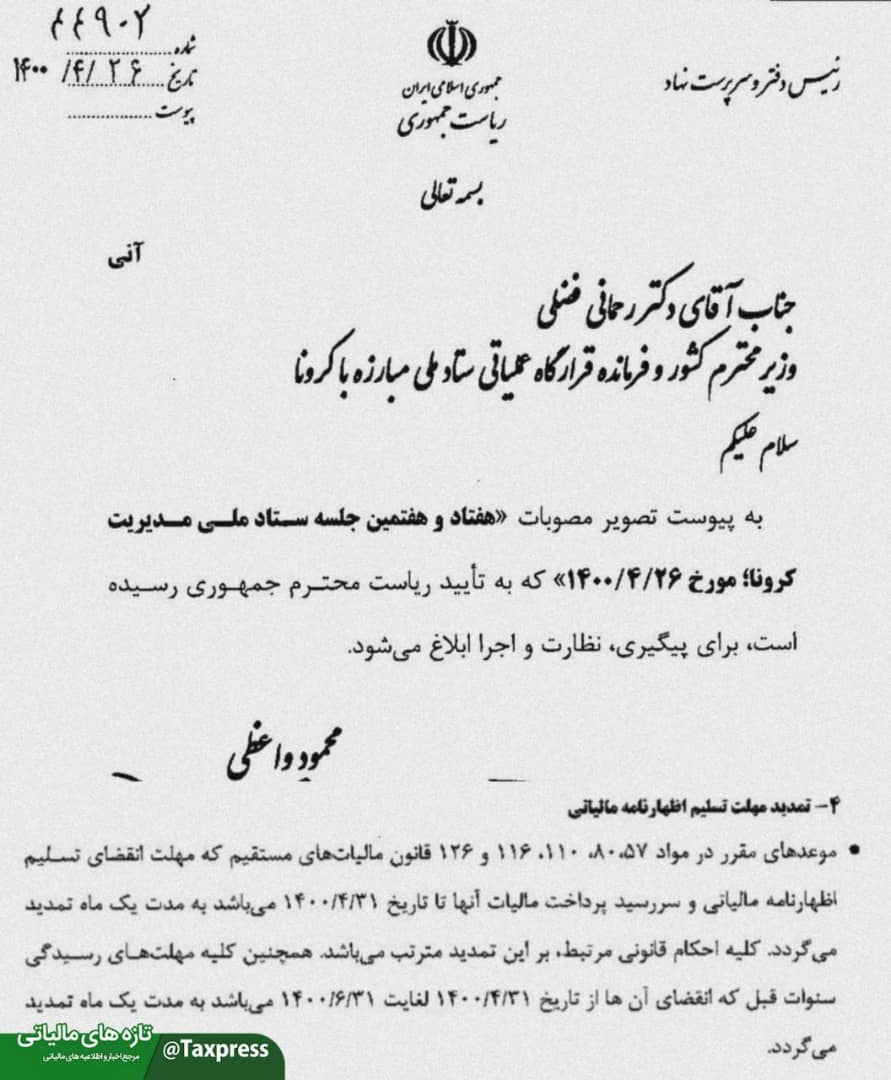 شماره ۴۴۹۰۲
تاریخ ۱۴۰۰/۴/۲۶
پیوست
جمهوری اسلامی ایران
ریاست جمهوری
رئیس دفتر و سرپرست نهاد
بسمه تعالی
آنی
جناب آقای دکتر رحمانی فضلی
وزیر محترم کشور و فرمانده قرارگاه عملیاتی ستاد ملی مبارزه با کرونا
سلام علیکم
به پیوست تصویر مصوبات «هفتاد و هفتمین جلسه ستاد ملی مدیریت
کرونا؛ مورخ ۱۴۰۰/۴/۲۶» که به تأیید ریاست محترم جمهوری رسیده
است، برای پیگیری، نظارت و اجرا ابلاغ می‌شود.
محمود واعظی
۴- تمدید مهلت تسلیم اظهارنامه مالیاتی
• موعدهای مقرر در مواد ۸۰،۵۷، ۱۱۰، ۱۱۶ و ۱۲۶ قانون مالیات‌های مستقیم که مهلت انقضای تسلیم
اظهارنامه مالیاتی و سررسید پرداخت مالیات آنها تا تاریخ ۱۴۰۰/۴/۳۱ می‌باشد به مدت یک ماه تمدید
می‌گردد. کلیه احکام قانونی مرتبط، بر این تمدید مترتب می‌باشد. همچنین کلیه مهلت‌های رسیدگی
سنوات قبل که انقضای آن ها از تاریخ ۱۴۰۰/۴/۳۱ لغایت ۱۴۰۰/۶/۳۱ می‌باشد به مدت یک ماه تمدید
می‌گردد.
تازه های مالیاتی
مرجع اخبار و اطلاعیه های مالیاتی
@Taxpress